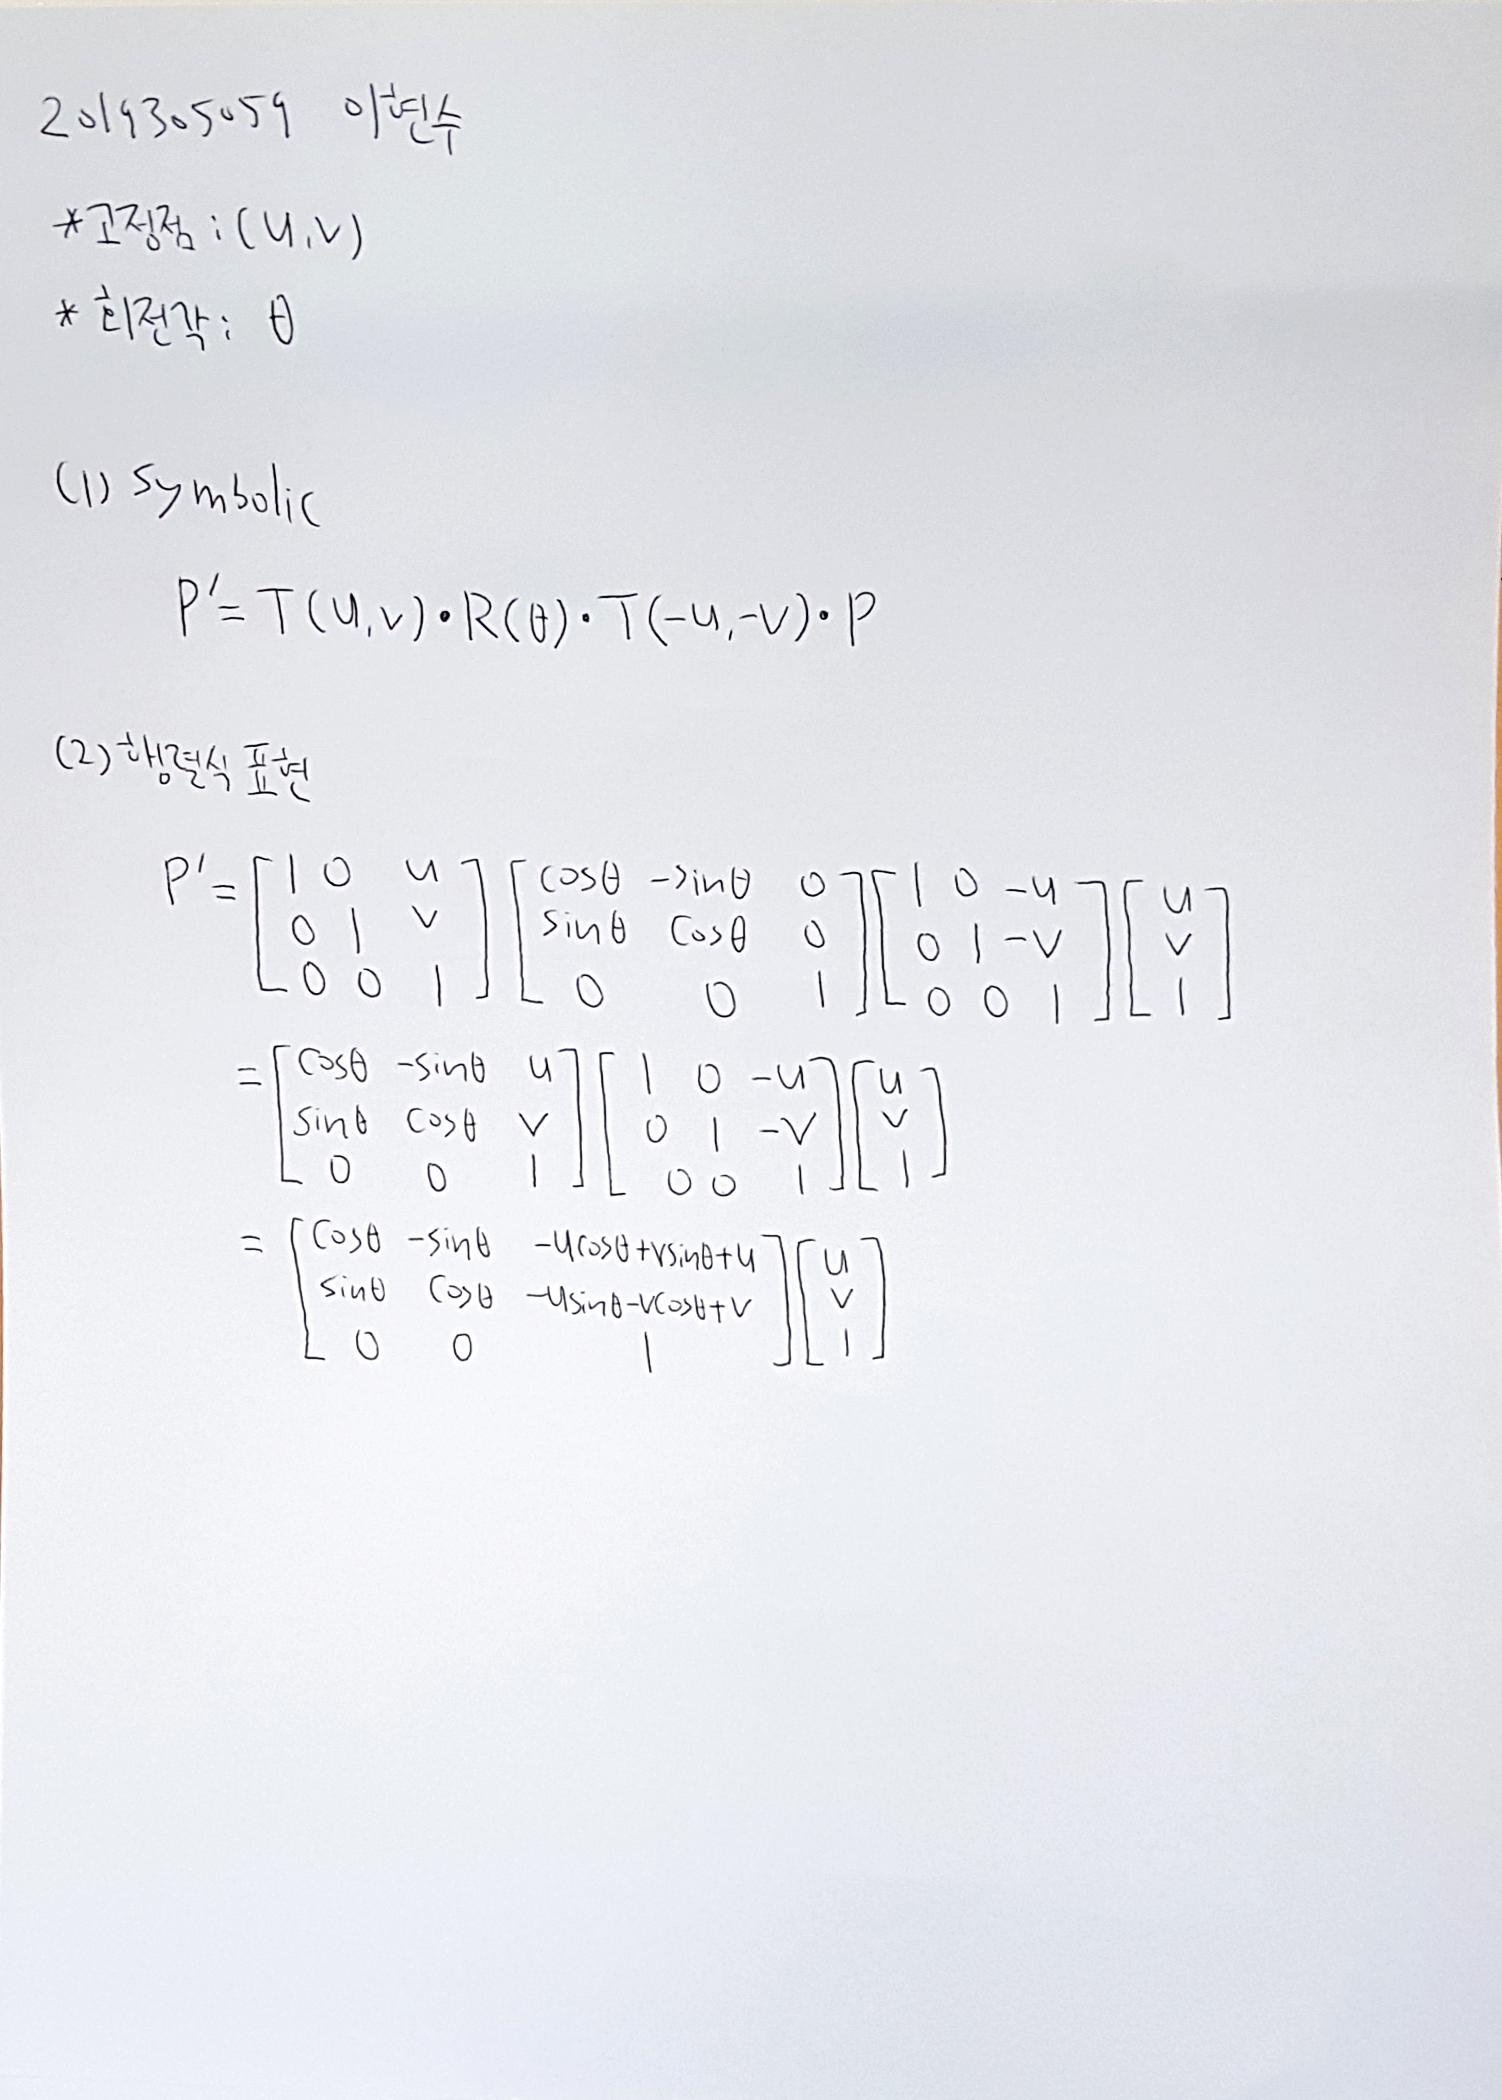 2019305059 이현수
*고정점 : (u,v)
* 회전각 : θ
(1) Symbolic
P'= T(u,v)•R(θ)•T(-u,-v)•P
(2) 행렬식 표현
P'= [1 0 u; 0 1 v; 0 0 1] [cosθ -sinθ 0; sinθ cosθ 0; 0 0 1] [1 0 -u; 0 1 -v; 0 0 1] [u; v; 1]
= [cosθ -sinθ u; sinθ cosθ v; 0 0 1] [1 0 -u; 0 1 -v; 0 0 1] [u; v; 1]
= [cosθ -sinθ -ucosθ+vsinθ+u; sinθ cosθ -usinθ-vcosθ+v; 0 0 1] [u; v; 1]